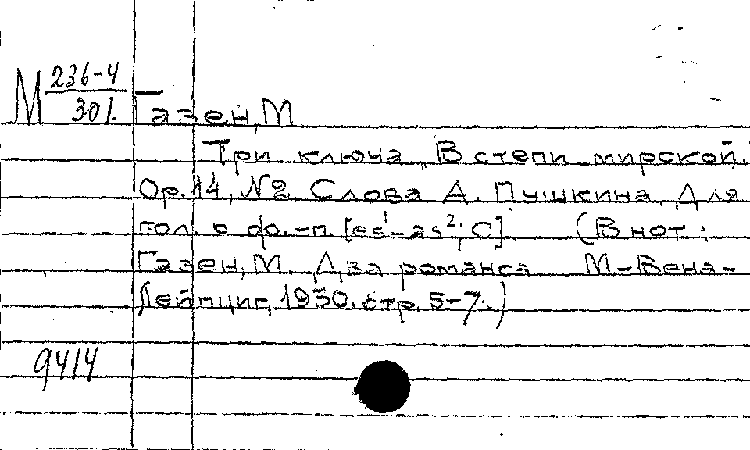 М 236-4/301. Газен, М
Три ключа. В степи мирской.
Ор. 14, №2 Слова А. Пушкина. Для
гол. с фо.-п. [es¹-as²; C] (В нот.:
Газен, М. Два романса М-Вена-
Лейпциг, 1930. стр. 5-7.)
9414